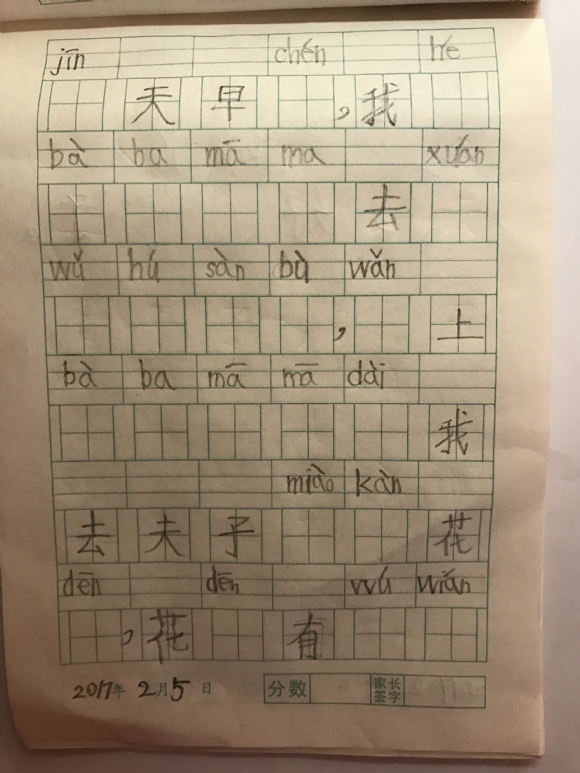 jīn chén hé
天 早 ，我
bà ba mā ma xuán
去
wǔ hú sàn bù wǎn
， 上
bà ba mā mā dài
我
miào kàn
去 夫 子 花
dēn dēn wú wiǎn
，花 有
2017年 2月5日 分数 家长签字